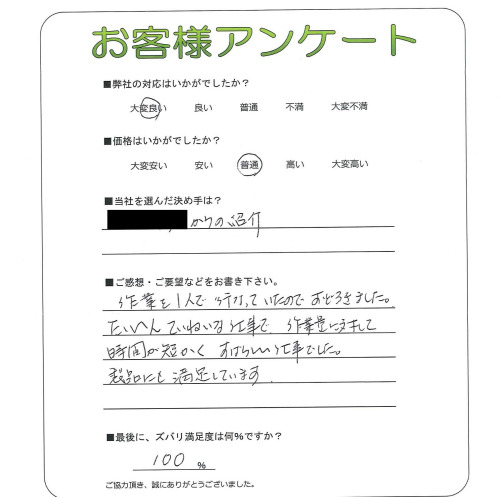 お客様アンケート
■弊社の対応はいかがでしたか？
大変良い 良い 普通 不満 大変不満
■価格はいかがでしたか？
大変安い 安い 普通 高い 大変高い
■当社を選んだ決め手は？
からの紹介
■ご感想・ご要望などをお書き下さい。
作業を1人で行なっていたのでおどろきました。
たいへんていねいな仕事で、作業量に対して
時間が短かく すばらしい仕事でした。
製品にも満足しています
■最後に、ズバリ満足度は何%ですか？
100 %
ご協力頂き、誠にありがとうございました。